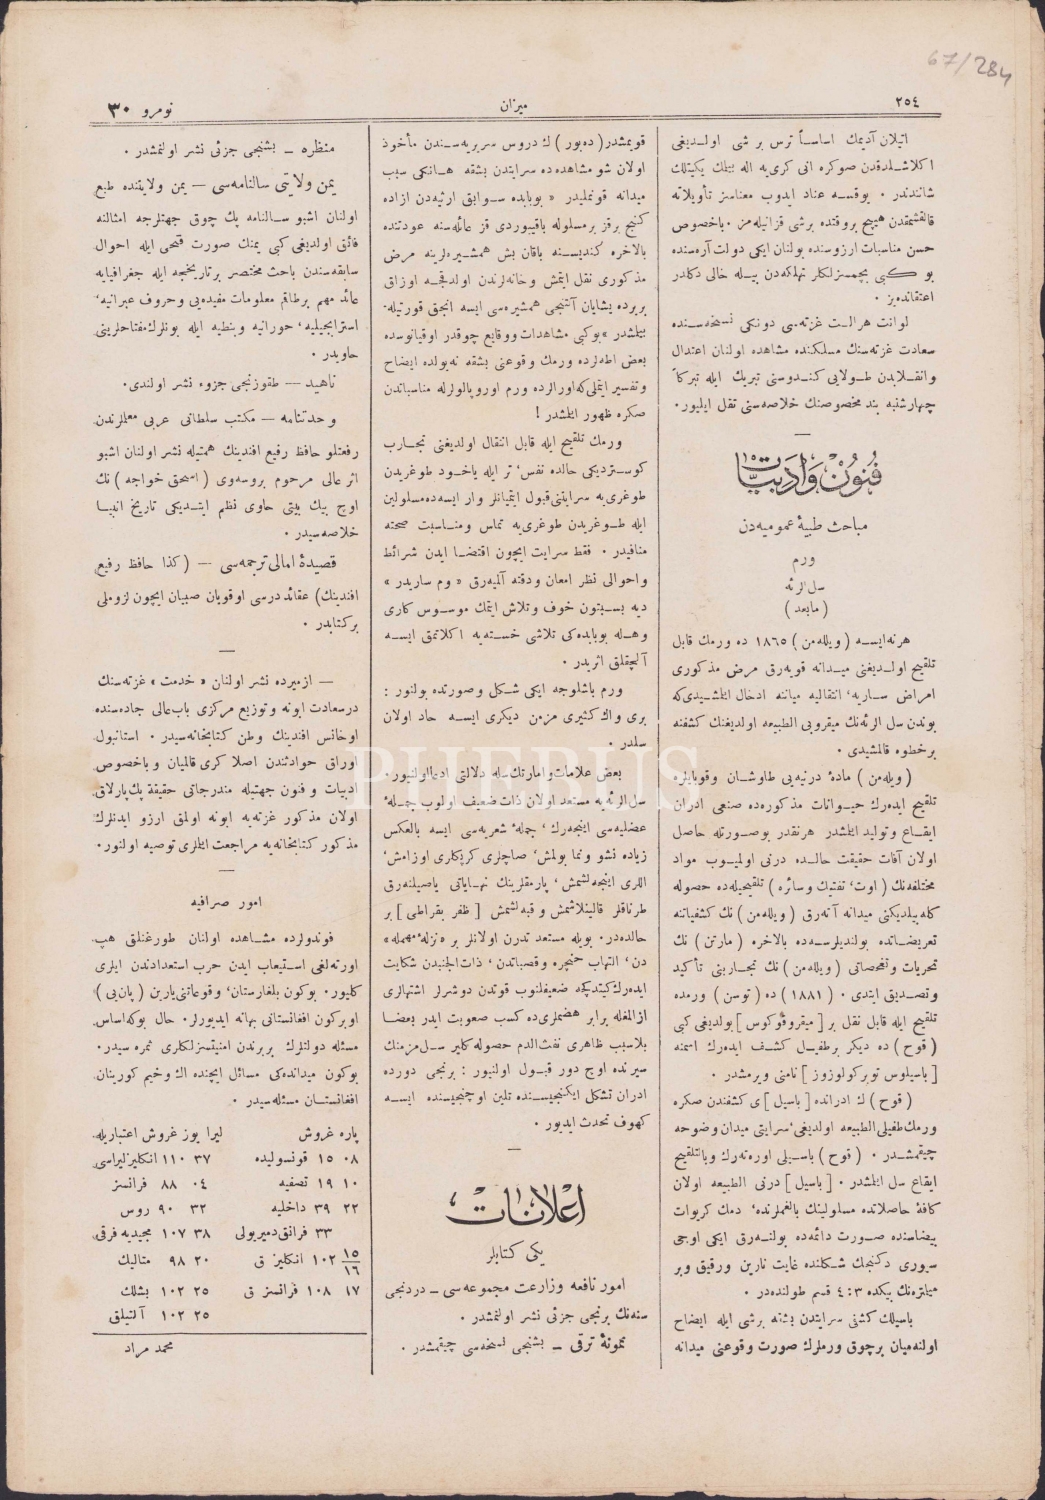 67/284
٢٥٤
ميزان
نومرو ٣٠
اتيلان آديمك اساساً ترس بر شى اولـديغى
اكلاشلدقدن صوكره انى كرى يه اله بيلك يكيتلك
شانندندر . يوقسه عناد ايدوب معناسز تأويلاته
قالقشمقدن هيچ بر وقتده برشى قزانيله‌مز . باخصوص
حسن مناسبات ارزوسنده بولنان ايكى دولت آره‌سنده
بو كبى
بيله خالى دكلدر
اعتقادنده‌يز .
لوانت هرالت غزته‌سى دونكى نسخه‌سنده
سعادت غزته‌سنك مسلكنده مشاهده اولنان اعتدال
وانقلابدن طولايى كندوسنى تبريك ايله تبركاً
چهارشنبه بند مخصوصنك خلاصه‌سنى نقل ايليور.
فنون وادبيات
مباحث طبيهٔ عموميه‌دن
ورم
سل الرئه
( مابعد )
هرنه‌ايسه ( ويله‌من ) ١٨٦٥ ده ورمك قابل
تلقيح اولديغنى ميدانه قويه‌رق مرض مذكورى
امراض ساريه، انتقاليه ميانه ادخال ايتلشيدى‌كه
بوندن سل الرئه‌نك ميقروبى الطبيعه اولديغنك كشفنه
بر خطوه قالمشيدى .
( ويله‌من ) مادهٔ درنيه‌يى طاوشان وقوبايلره
تلقيح ايده‌رك حيوانات مذكوره‌ده صنعى ادران
ايقاع وتوليد ايتلشدر هرنقدر بوصورتله حاصل
اولان آفات حقيقت حالده درنى اولميوب مواد
مختلفه‌نك ( اوت، تفتيك وسائره ) تلقيحيله‌ده حصوله
كله‌بيلديكنى ميدانه آته‌رق ( ويله‌من ) نك كشفياتنه
تعريضاتده بولنديلرسه‌ده بالاخره ( مارتن ) نك
تحريات وتفحصاتى ( ويله‌من ) نك تجاربنى تأكيد
وتصديق ايتدى . ( ١٨٨١ ) ده ( توسن ) ورمده
تلقيح ايله قابل نقل بر [ ميقروقوكوس ] بولديغى كبى
( قوح ) ده ديكر بر طفيل كشف ايده‌رك اسمنه
[ باسيلوس توبركولوزوز ] نامنى ويرمشدر .
( قوح ) ك ادرانده [ باسيل ] ى كشفندن صكره
ورمك طفيلى الطبيعه اولديغى، سرايتى ميدان وضوحه
چيقمشدر . ( قوح ) باسيلى اوره‌ته‌رك وبالتلقيح
ايقاع سل ايتلشدر . [ باسيل ] درنى الطبيعه اولان
كافهٔ حاصلاتده مسلولينك بالغملرنده، دمك كريوات
بيضاسنده صورت دائمه‌ده بولنه‌رق ايكى اوجى
سيورى دكنجك شكلنده غايت نارين ورقيق وبر
ميليمتره‌نك بيكده ٣:٤ قسم طولنده‌در .
باسيلك كشفى سرايتدن بشقه برشى ايله ايضاح
اولنه‌ميان بر چوق ورملرك صورت وقوعنى ميدانه
قويمشدر ( ده‌بور ) ك دروس سريريه‌سندن مأخوذ
اولان شو مشاهده‌ده سرايتدن بشقه هانكى سبب
ميدانه قونمليدر « بوبابده سوابق ارثيه‌دن ازاده
كنج بر قز بر مسلوله باقيوردى قز عائله‌سنه عودتنده
بالاخره كنديسنه باقان بش همشيره‌لرينه مرض
مذكورى نقل ايتمش وخانه‌لرندن اولدقجه اوزاق
بريرده يشايان آلتنجى همشيره‌سى ايسه انجق قورتيله‌
بيلشدر » بوكبى مشاهدات ووقايع چوقدر اوقيانوسده
بعض اطه‌لرده ورمك وقوعنى بشقه نه‌يولده ايضاح
وتفسير ايتملى‌كه اورالرده ورم اوروپالولرله مناسباتدن
صكره ظهور ايتلشدر !
ورمك تلقيح ايله قابل انتقال اولديغنى تجارب
كوستردیكى حالده نفس، تر ايله ياخود طوغريدن
طوغرى‌يه سرايتنى قبول ايتميانلر وار ايسه‌ده مسلولين
ايله طوغريدن طوغرى‌يه تماس ومناسبت صحته
منافيدر . فقط سرايت ايچون اقتضا ايدن شرائط
واحوالى نظر امعان ودقته آلميه‌رق « ورم ساريدر »
ديه بسبتون خوف وتلاش ايتمك موسوس كارى
وهله بوبابده‌كى تلاشى خسته‌يه اكلاتمق ايسه
آلچقلق اثريدر .
ورم باشلوجه ايكى شكل وصورتده بولنور :
برى واك كثيرى مزمن ديكرى ايسه حاد اولان
سلدر .
بعض علامات وامارتك سله دلالتى ادعا اولنيور.
سل الرئه‌يه مستعد اولان ذات ضعيف اولوب جملهٔ
عضليه‌سى اينجه‌رك ، جملهٔ شعريه‌سى ايسه بالعكس
زياده نشو ونما بولمش، صاچلرى كرپكلرى اوزامش،
اللرى اينجه‌لشمش ، پارمقلرينك نهاياتى ياصيلنه‌رق
طرناقلر قالينلاشمش وقبه‌لشمش [ ظفر بقراطى ] بر
حالده‌در. بويله مستعد تدرن اولانلر بر « نزلهٔ مهمله »
دن ، التهاب حنجره وقصباتدن ، ذات الجنبدن شكايت
ايده‌رك كيتدكچه ضعيفلنوب قوتدن دوشرلر اشتهالرى
ازالمغله برابر هضملرى‌ده كسب صعوبت ايدر بعضا
بلاسبب ظاهرى نفث الدم حصوله كلير سل مزمنك
سيرنده اوچ دور قبول اولنيور : برنجى دورده
ادران تشكل ايكنجيسنده تلين اوچنجيسنده ايسه
كهوف تحدث ايديور .
اعلانات
يكى كتابلر
امور نافعه وزارعت مجموعه‌سى — دردنجى
سنه‌نك برنجى جزئى نشر اولنمشدر .
نمونهٔ ترقى — بشنجى نسخه‌سى چيقمشدر .
منظره — بشنجى جزئى نشر اولنمشدر .
يمن ولايتى سالنامه‌سى — يمن ولايتنده طبع
اولنان اشبو سالنامه پك چوق جهتلرجه امثالنه
فائق اولديغى كبى يمنك صورت فتحى ايله احوال
سابقه‌سندن باحث مختصر بر تاريخجه ايله جغرافيايه
عائد مهم برطاقم معلومات مفيده‌يى وحروف عبرانيه،
استرانجيليه، حورانيه ونبطيه ايله بونلرك مفتاحلرينى
حاويدر .
ناهيد — طقوزنجى جزوء نشر اولندى.
وحدتنامه — مكتب سلطانى عربى معلملرندن
رفعتلو حافظ رفيع افندينك همتيله نشر اولنان اشبو
اثر عالى مرحوم بروسه‌وى ( اسحق خواجه ) نك
اوچ بيك بيتى حاوى نظم ايتديكى تاريخ انبيا
خلاصه‌سيدر .
قصيدهٔ امالى ترجمه‌سى — ( كذا حافظ رفيع
افندينك ) عقائد درسى اوقويان صبيان ايچون لزوملى
بر كتابدر .
— ازميرده نشر اولنان « خدمت » غزته‌سنك
درسعادت ابونه وتوزيع مركزى باب عالى جاده‌سنده
اوخانس افندينك وطن كتابخانه‌سيدر . استانبول
اوراق حوادثندن اصلا كرى قالميان وباخصوص
ادبيات وفنون جهتيله مندرجاتى حقيقة پك پارلاق
اولان مذكور غزته‌يه ابونه اولمق ارزو ايدنلرك
مذكور كتابخانه‌يه مراجعت ايتلرى توصيه اولنور.
امور صرافيه
فوندولرده مشاهده اولنان طورغنلق هپ
اورته‌لغى استيعاب ايدن حرب استعدادندن ايلرى
كليور. بوكون بلغارستان، وقوعاتنى يارين ( پان‌بى )
اوبركون افغانستانى بهانه ايديورلر. حال بوكه اساس
مسئله دولتلرك بربرندن امنيتسزلكلرى ثمره سيدر.
بوكون ميدانده‌كى مسائل ايچنده اك وخيم كورينان
افغانستان مسئله‌سيدر .
پاره غروش
٠٨ ١٥ قونسوليده
١٠ ١٩ تصفيه
٢٢ ٣٩ داخليه
٣٣ فرانق دميريولى
١٥/١٦ ١٠٢ انكليز ق
١٧ ١٠٨ فرانسز ق
ليرا يوز غروش اعتباريله
٣٧ ١١٠ انكليز ليراسى
٠٤ ٨٨ فرانسز
٣٢ ٩٠ روس
٣٨ ١٠٧ مجيديه فرقى
٢٠ ٩٨ متاليك
٢٥ ١٠٢ بشلك
٢٥ ١٠٢ آلتيلق
محمد مراد
PHEBUS